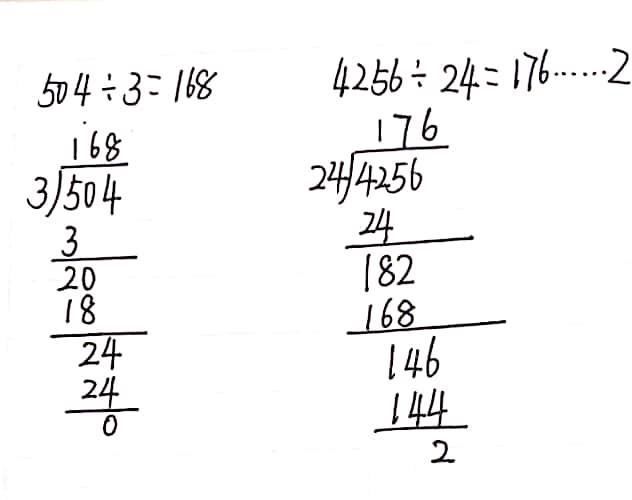 504÷3=168
168
3)504
3
20
18
24
24
0
4256÷24=176……2
176
24)4256
24
182
168
146
144
2